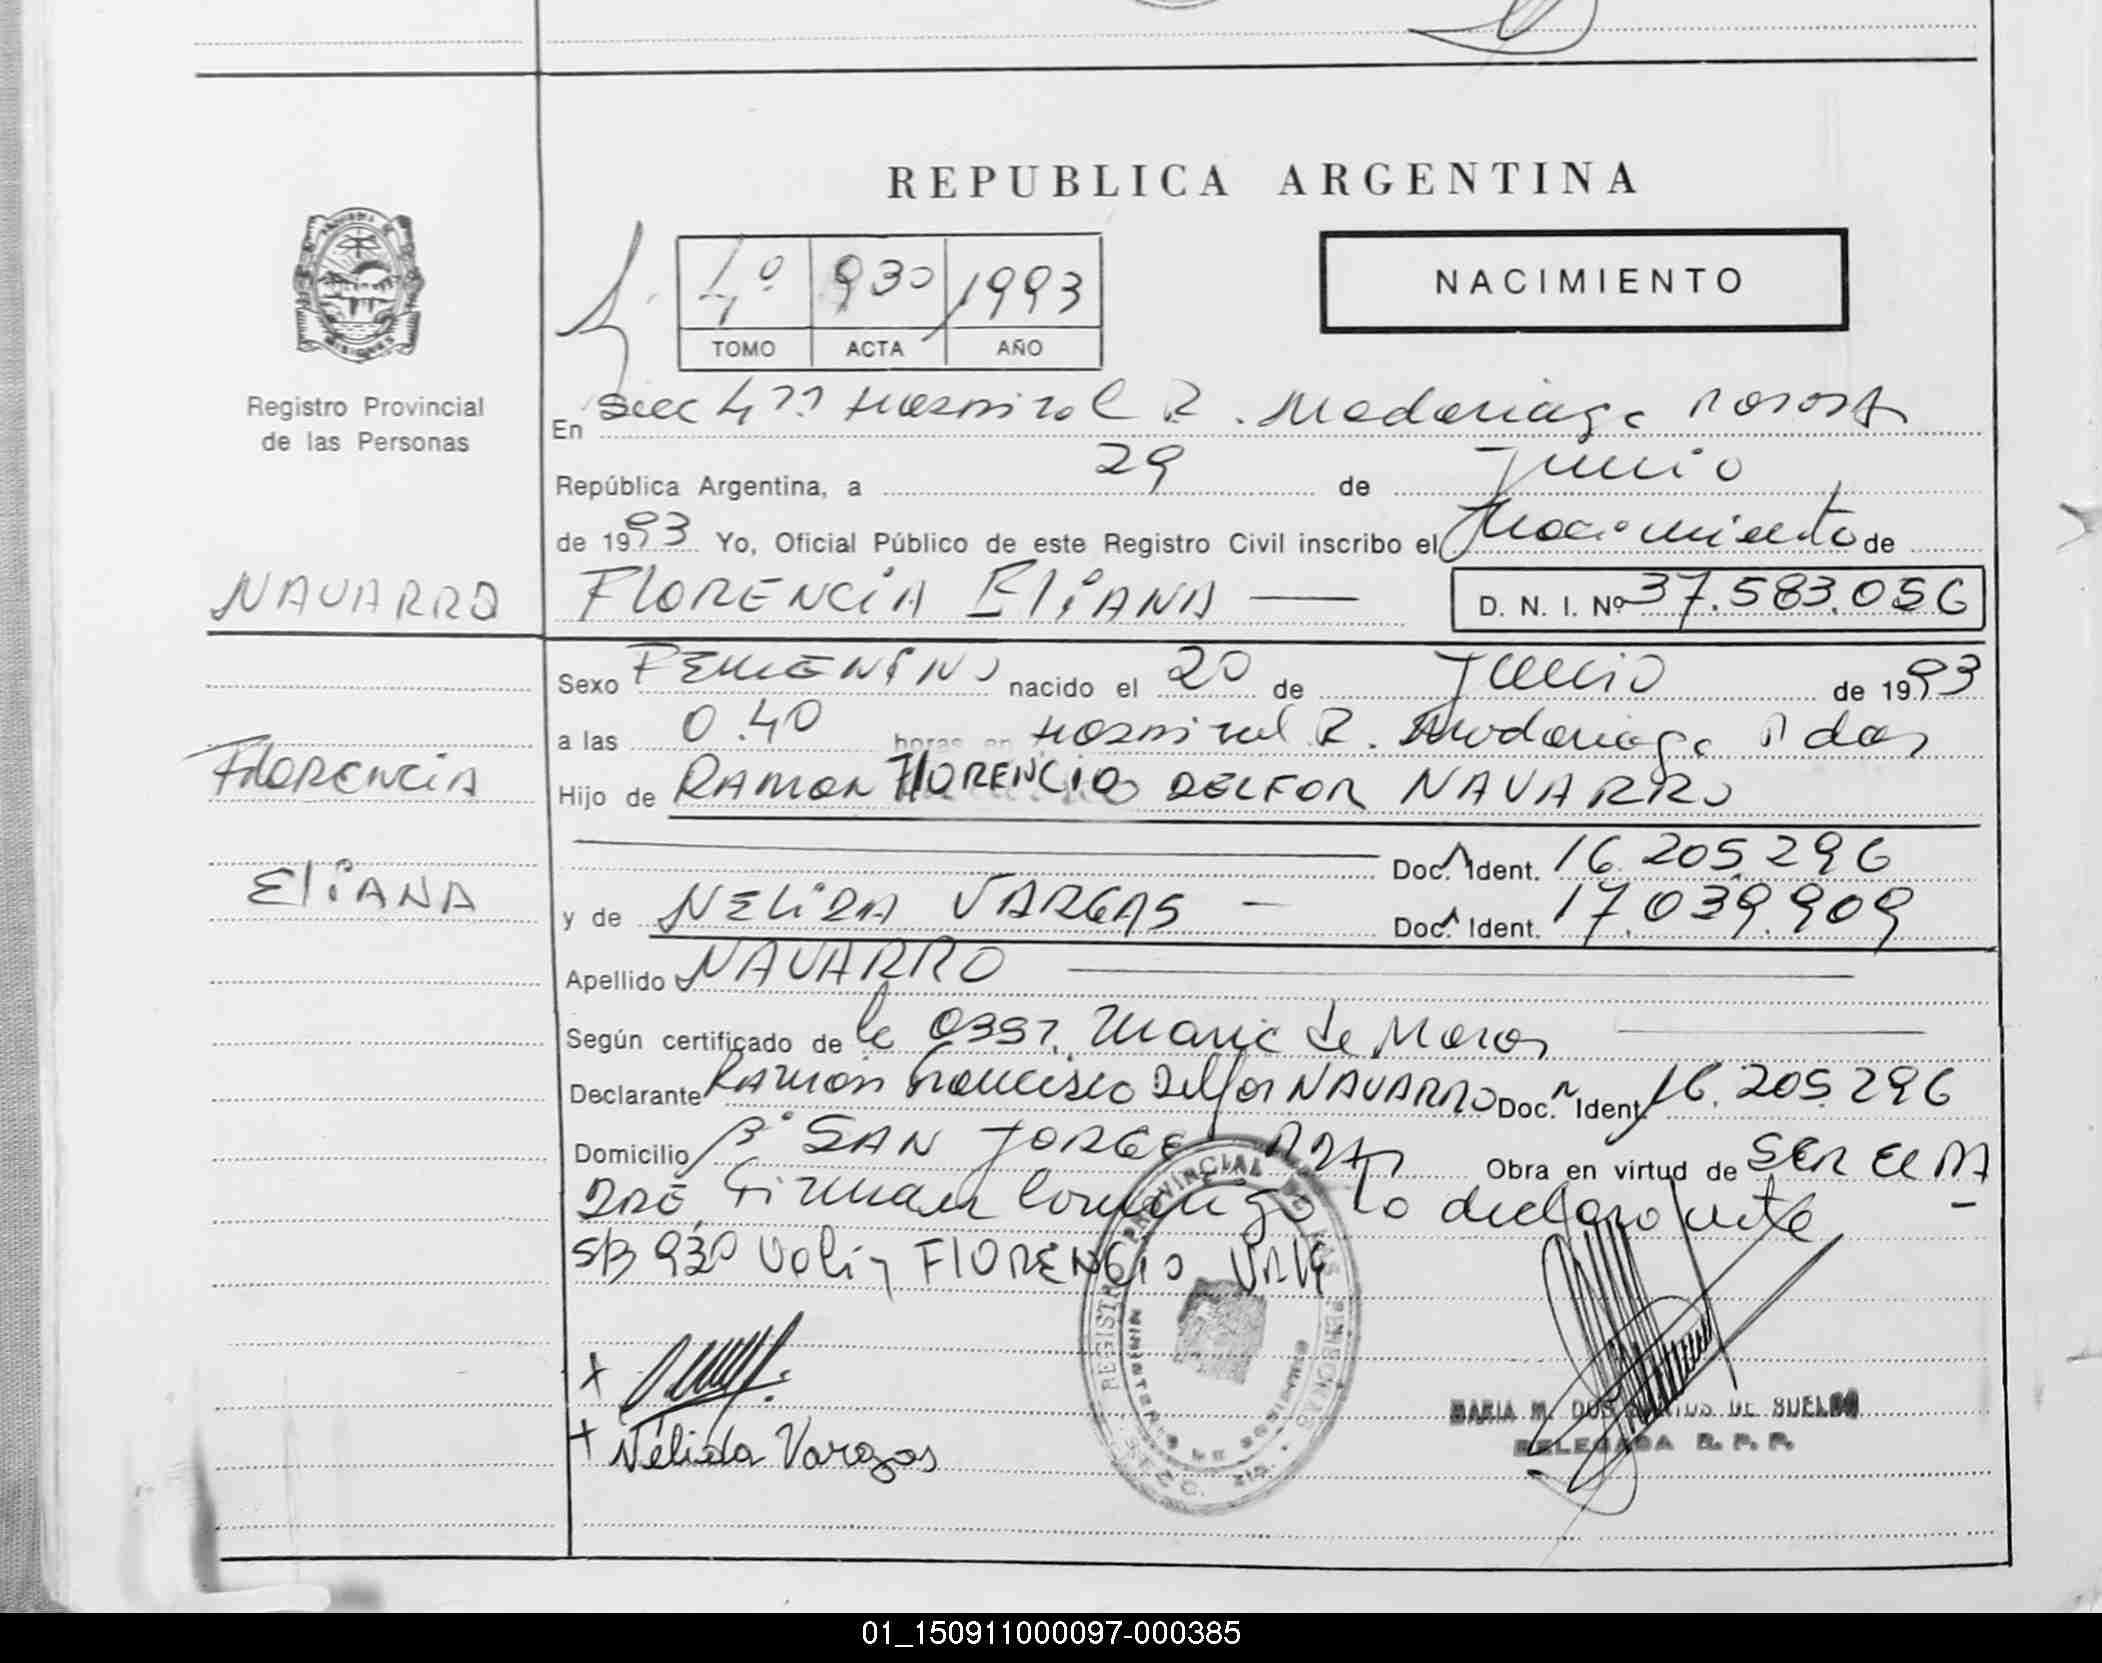 REPUBLICA ARGENTINA
NACIMIENTO
4º 930 1993
TOMO ACTA AÑO
Registro Provincial
de las Personas
En Secc 4ta Hospital R. Madariaga Posadas
República Argentina, a 29 de Junio
de 1993 Yo, Oficial Público de este Registro Civil inscribo el Nacimiento de
NAVARRO
FLORENCIA ELIANA D. N. I. Nº 37.583.056
Sexo FEMENINO nacido el 20 de Junio de 1993
a las 0.40 horas en Hospital R. Madariaga Pdas
FLORENCIA
Hijo de RAMON FLORENCIO DELFOR NAVARRO
Doc. Ident. 16.205.296
ELIANA
y de NELIDA VARGAS — Doc. Ident. 17.039.909
Apellido NAVARRO
Según certificado de la Obst. Maria de Moros
Declarante Ramon Francisco Delfor NAVARRO Doc. Ident. 16.205.296
Domicilio Bº SAN JORGE Pdas Obra en virtud de SER EL PA
DRE, Firman conmigo la declarante —
S/B 930 Vali FLORENCIO Vale
REGISTRO PROVINCIAL DE LAS PERSONAS
MINISTERIO DE GOBIERNO
MARIA M. DOS SANTOS DE SUELDO
DELEGADA R. P. P.
x
+ Nélida Vargas
01_150911000097-000385